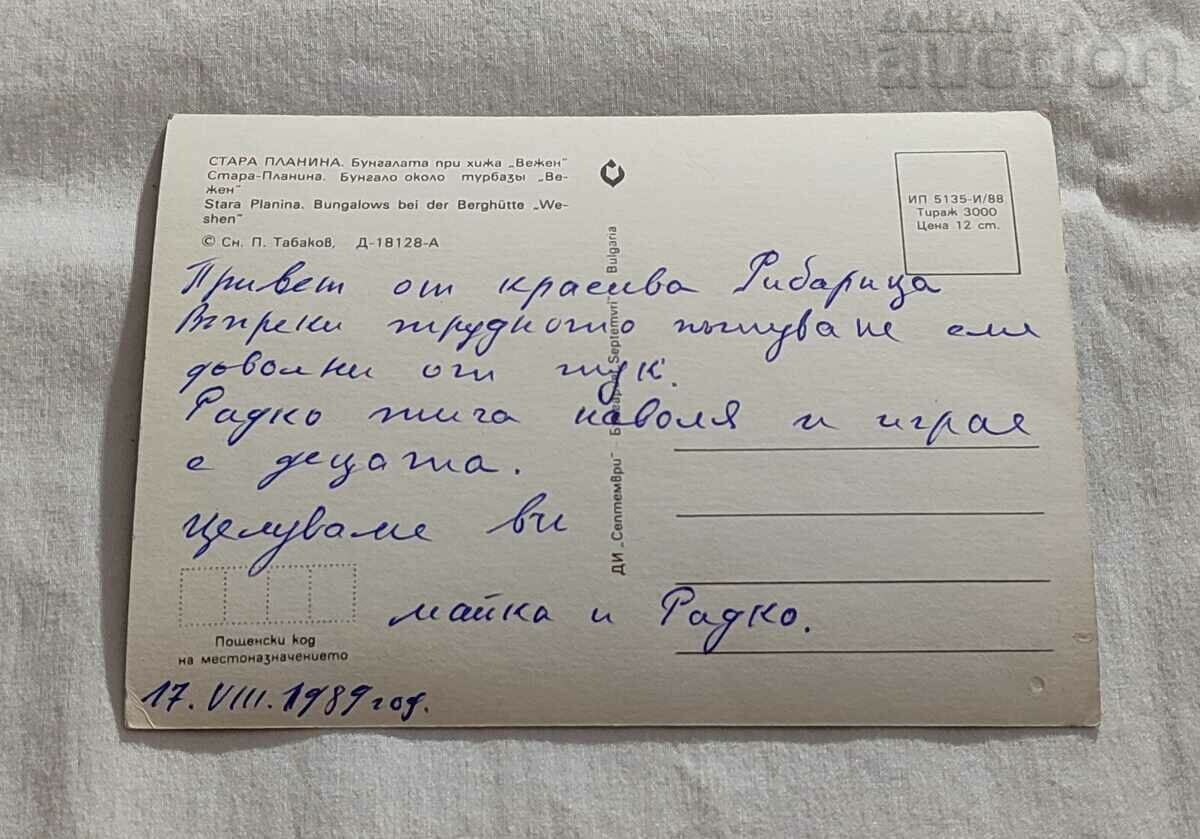 СТАРА ПЛАНИНА. Бунгалата при хижа „Вежен"
Стара-Планина. Бунгало около турбазы „Ве-
жен"
Stara Planina. Bungalows bei der Berghütte „We-
shen"
© Сн. П. Табаков, Д-18128-А
ИП 5135-И/88
Тираж 3000
Цена 12 ст.
Привет от красива Рибарица
Въпреки трудното пътуване сме
доволни от тук.
Радко тича наволя и играе
с децата.
Целуваме ви
майка и Радко.
17. VIII. 1989 год.
Пощенски код
на местоназначението
ДИ „Септември" – Septemvri Bulgaria
БАЛКАН
auction